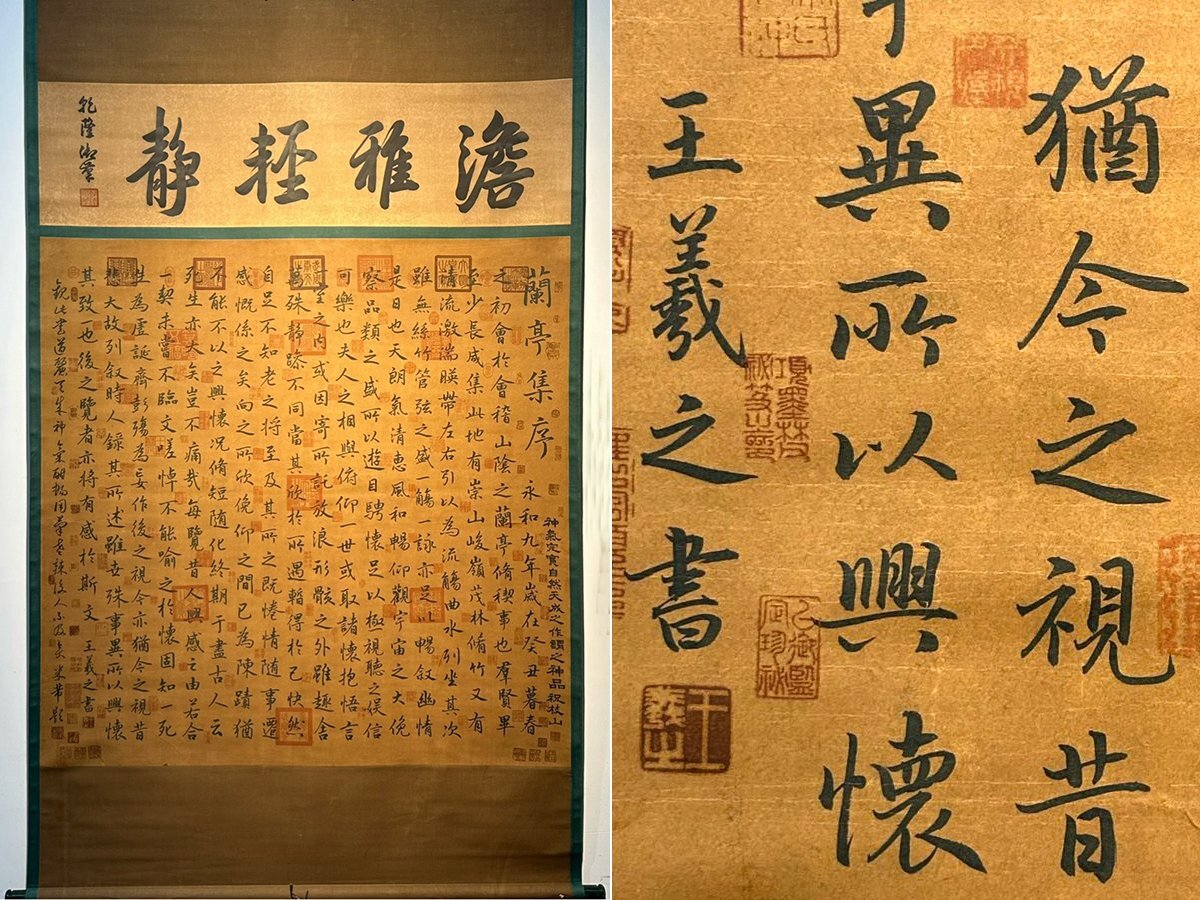 澹雅輕静
乾隆御筆
神氣完實自然天成之作謂之神品祝枝山
蘭亭集序 永和九年歲在癸丑暮春
之初會於會稽山陰之蘭亭脩禊事也羣賢畢
至少長咸集此地有崇山峻嶺茂林脩竹又有
清流激湍暎帶左右引以為流觴曲水列坐其次
雖無絲竹管弦之盛一觴一詠亦足以暢叙幽情
是日也天朗氣清惠風和暢仰觀宇宙之大俛
察品類之盛所以遊目騁懷足以極視聽之娛信
可樂也夫人之相與俯仰一世或取諸懷抱悟言
一室之内或因寄所託放浪形骸之外雖趣舍
萬殊静躁不同當其欣於所遇暫得於己快然
自足不知老之將至及其所之既惓情隨事遷
感慨係之矣向之所欣俛仰之間已為陳蹟猶
不能不以之興懷況脩短隨化終期于盡古人云
死生亦大矣豈不痛哉每覽昔人興感之由若合
一契未嘗不臨文嗟悼不能喻之於懷固知一死
生為虛誕齊彭殤為妄作後之視今亦猶今之視昔
悲夫故列叙時人錄其所述雖世殊事異所以興懷
其致一也後之覽者亦將有感於斯文 王羲之書
觀此書遒麗 酣暢用筆老辣後人不及 米芾題
猶今之視昔
異所以興懷
王羲之書
王羲之